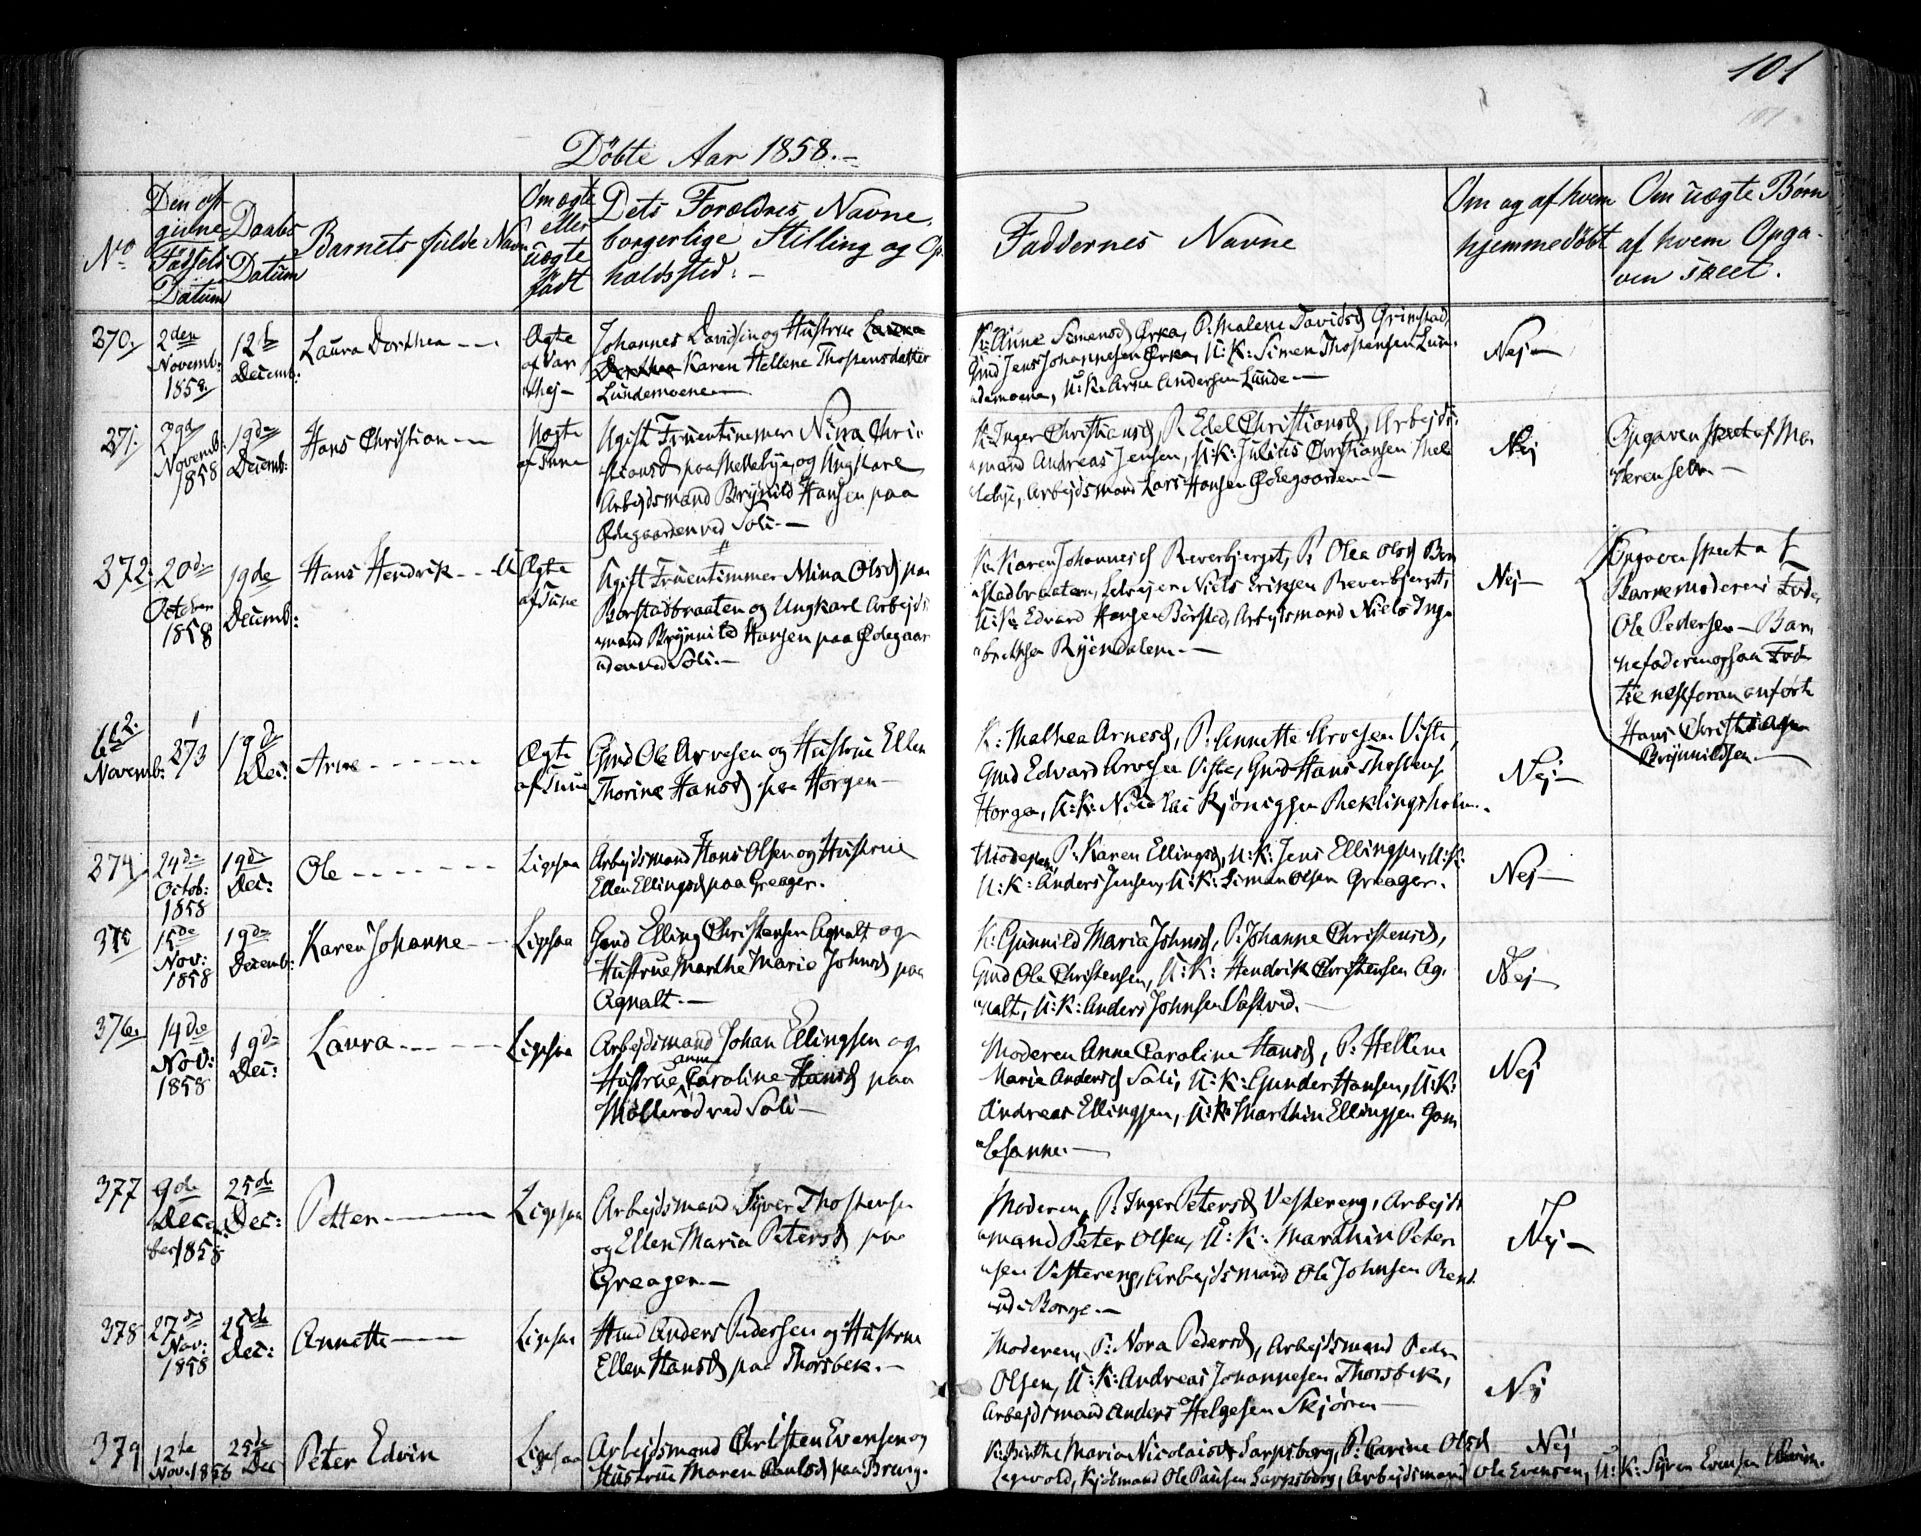 101
101
Döbte Aar 1858.-
No
Den op
givne
Fødsels
Datum
Daabs
Datum
Barnets fulde Navn
Om ægte
eller
uægte
født
Dets Forældres Navne,
borgerlige Stilling og Op-
holdssted.-
Faddernes Navne
Om og af hvem
hjemmedøbt
Om uægte Børn
af hvem Opga-
ven skeet.
370.
2den
Novemb:
1858.
12te
Decemb:
Laura Dorthea
Ægte
af Var
theig
Johannes Davidsen og Hustrue Laura
Dorthea Karen Hellene Thostensdatter
Lundemoene
K: Anne Simensd Ørka, P: Malene Davidsd Grimstad,
Gmd Jens Johannesen Ørka, U:K: Simen Thostensen Lun-
demoene, U:K: Arne Andersen Lunde.
Nej
371.
Novemb:
1858
19de
Decemb:
Hans Christian
Uægte
af Tune
Ugift Fruentimmer Nina Chri-
stiansd paa Mellebye, og Ungkarl
Arbejdsmand Brynild Hansen paa
Ødegaarden ved Soli.
K: Inger Christiansd, P. Edel Christiansd, Arbejds-
mand Andreas Jensen, U:K: Julius Christiansen Mel-
lebye, Arbejdsmand Lars Hansen Ødegaarden
Nej
Opgaven skeet af Mo-
deren selv
372.
20de
October
1858
19de
Decemb:
Hans Hendrik
U Ægte
af Tune
Ugift Fruentimmer Mina Olsd paa
Borstadbraaten og Ungkarl Arbejds-
mand Brynild Hansen paa Ødegaar-
den ved Soli.
K: Karen Johannesd Reverbjerget, P. Olea Olsd Bor-
stadbraaten, Selvejer Niels Eriksen Reverbjerget,
U:K: Edvard Hansen Børsted, Arbejdsmand Niels Inge-
bretsen Ryendalen.
Nej
Opgaven skeet af
Barnemoderens Fader
Ole Pedersen - Bar-
nefaderen ogsaa Fader
til næstforan anførte
Hans Christiagn
Brynildsen.
6te
Novemb:
373
19de
Dec:
Arne
Ægte
af Tune
Gmd Ole Arvesen og Hustrue Ellen
Thorine Hansd paa Horgen
K: Mathea Arnesd, P: Annette Arvesen Viste,
Gmd Edvard Arvesen Viste, Gmd Hans Thostens
Horgen, U:K: Nicolai Kjönigsen Reklingsholm.
Nej
374.
24de
Octob:
1858
19de
Dec:
Ole
Ligesaa
Arbejdsmand Hans Olsen og Hustrue
Ellen Ellingsd paa Greager.
Moderen, P: Karen Ellingsd, U:K: Jens Ellingsen, U:K:
U:K: Anders Jensen, U:K: Simen Olsen Greager.
Nej
375
15de
Nov:
1858
19de
Decemb:
Karen Johanne
Ligesaa
Gmd Elling Christensen Agnalt og
Hustrue Marthe Marie Johnsd paa
Agnalt.
K: Gunnild Maria Johnsd, P: Johanne Christensd,
Gmd Ole Christensen, U:K: Hendrik Christensen Ag-
nalt, U:K: Anders Johnsen Vestved.
Nej
376.
14de
Nov:
1858
19de
Dec:
Laura
Ligesaa
Arbejdsmand Johan Ellingsen og
Hustrue Anne Caroline Hansd paa
Møllerød ved Soli
Moderen Anne Caroline Hansd, P: Hellene
Maria Andersd Soli, U:K: Gunder Hansen, U:K:
Andreas Ellingsen, U:K: Marthin Ellingsen Gam-
lesanne.
Nej
377
9de
Decem-
ber 1858
25de
Dec:
Petter
Ligesaa
Arbejdsmand Syver Thostensen
og Ellen Maria Petersd paa
Greager.
Moderen, P: Inger Petersd Vestereng, Arbejds-
mand Peter Olsen, U:K: Marthin Peter-
sen Vestereng, Arbejdsmand Ole Johnsen
Borge.
Nej
378
27de
Nov:
1858
25de
Dec:
Annette
Ligesaa
Hmd Anders Pedersen og Hustrue
Ellen Hansd paa Thorsbek.
Moderen, P: Nora Pedersd, Arbejdsmand Peder
Olsen, U:K: Andreas Johannesen Thorsbek,
Arbejdsmand Anders Helgesen Skjøren
Nej
379
12te
Nov: 1858
25de
Dec
Peter Edvin
Ligesaa
Arbejdsmand Christen Evensen og
Hustrue Maren Paulsd paa Brevig.
K: Birthe Maria Nicolaisd Sarpsborg, P: Carine Olsd Nej
Ole Paulsen Sarpsborg, Arbejdsmand Ole Evensen, U:K: Syver Evensen